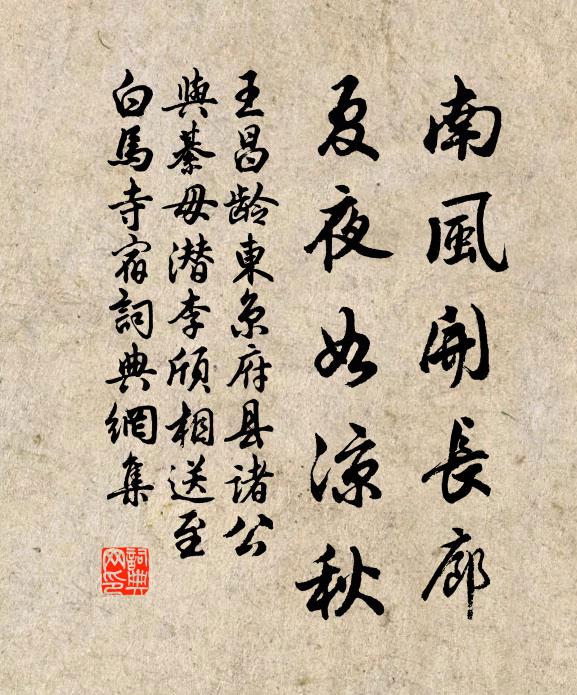 南風開長廊
夏夜如涼秋
王昌龄東京府县诸公
與綦毋潜李頎相送至
白馬寺宿詞典網集
詞典网印